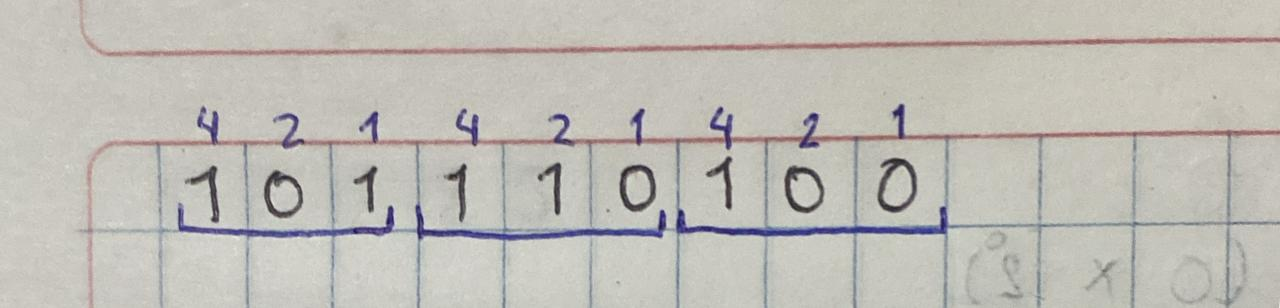 4 2 1 4 2 1 4 2 1
1 0 1 1 1 0 1 0 0